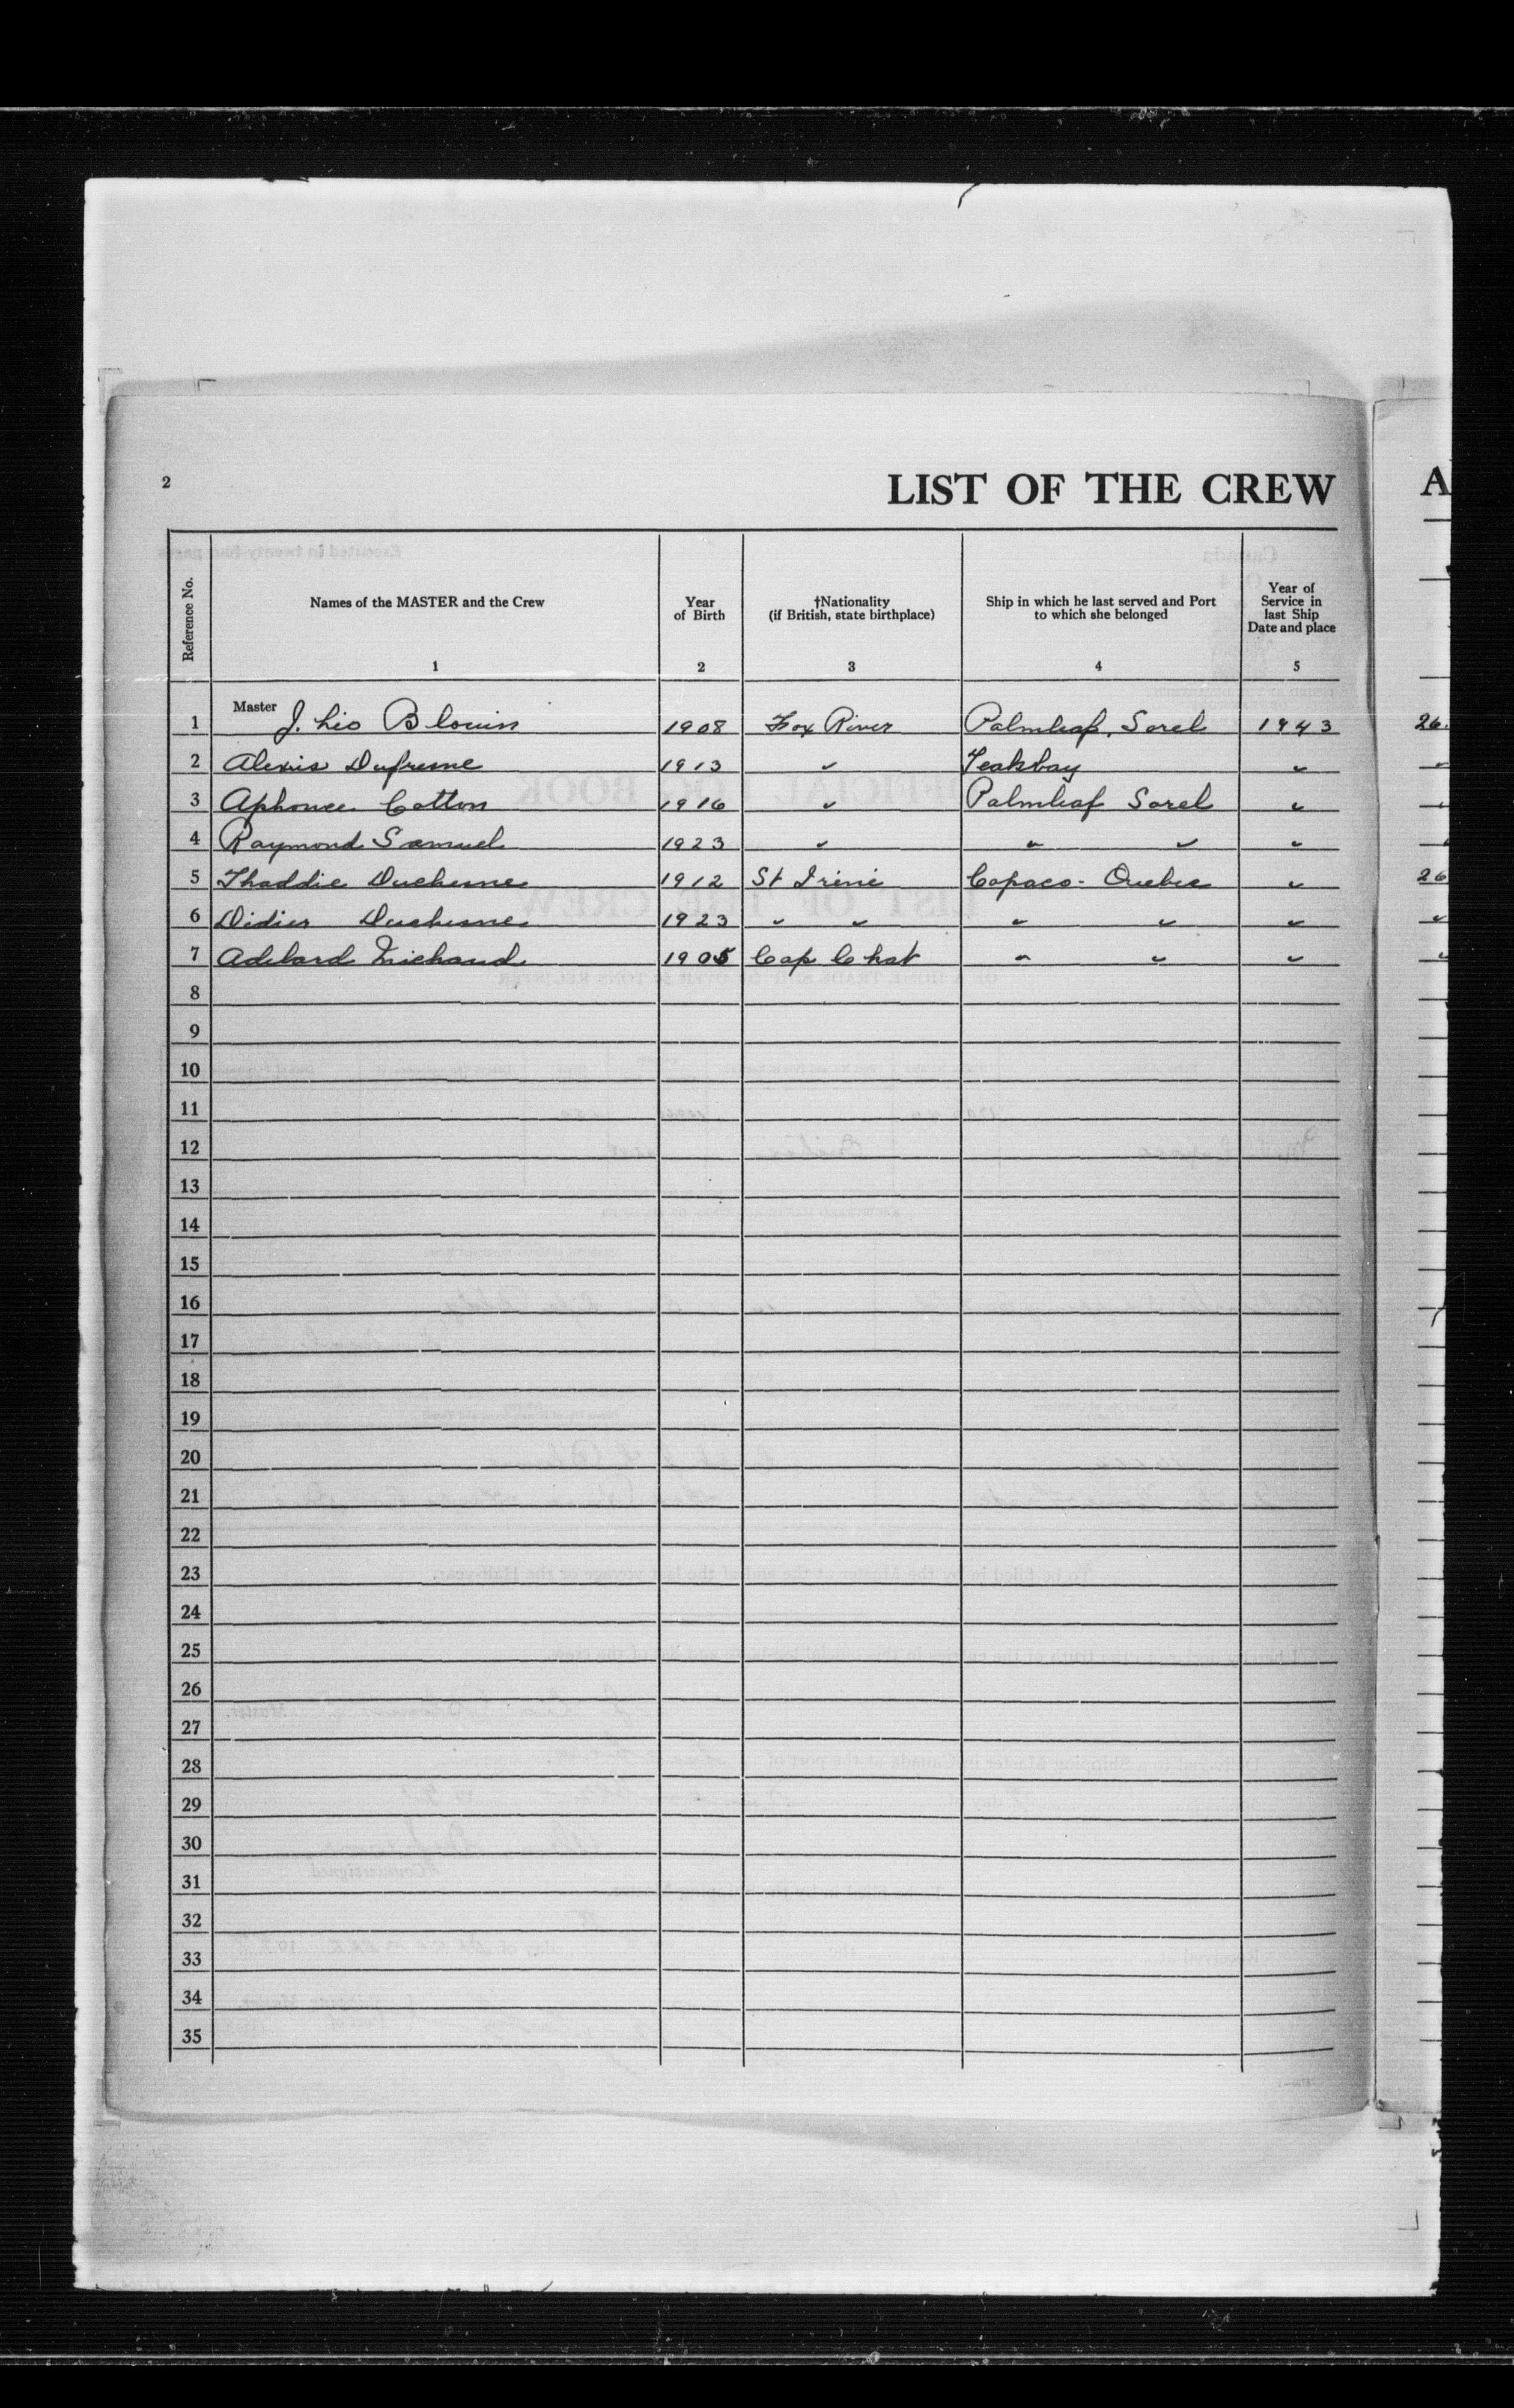 2
LIST OF THE CREW
A
Reference No.
Names of the MASTER and the Crew
1
Year
of Birth
2
†Nationality
(if British, state birthplace)
3
Ship in which he last served and Port
to which she belonged
4
Year of
Service in
last Ship
Date and place
5
1 Master J. Leo Blouin 1908 Fox River Palmleaf, Sorel 1943 26
2 Alexis Dufresne 1913 " Teakbay "
3 Aphonce Cotton 1916 " Palmleaf Sorel "
4 Raymond Samuel 1923 " " " "
5 Thaddie Duchesne 1912 St Irinie Copaco - Quebec " 26
6 Didier Duchesne 1923 " " " " " "
7 Adelard Michaud 1905 Cap Chat " " " "
8
9
10
11
12
13
14
15
16
17
18
19
20
21
22
23
24
25
26
27
28
29
30
31
32
33
34
35